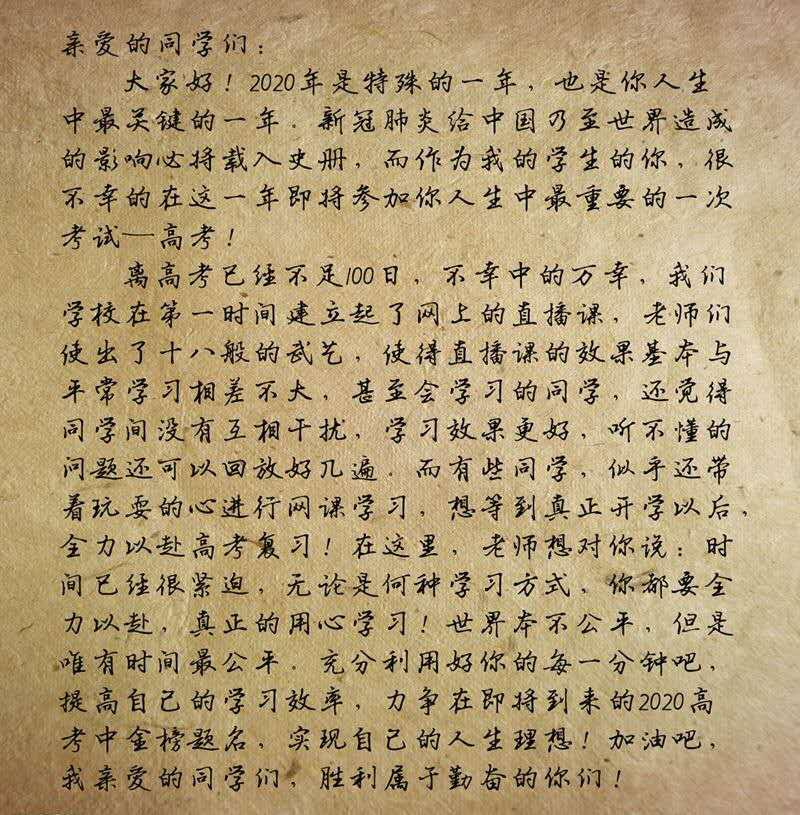 亲爱的同学们：
大家好！2020年是特殊的一年，也是你人生
中最关键的一年．新冠肺炎给中国乃至世界造成
的影响必将载入史册，而作为我的学生的你，很
不幸的在这一年即将参加你人生中最重要的一次
考试——高考！
离高考已经不足100日，不幸中的万幸，我们
学校在第一时间建立起了网上的直播课，老师们
使出了十八般的武艺，使得直播课的效果基本与
平常学习相差不大，甚至会学习的同学，还觉得
同学间没有互相干扰，学习效果更好，听不懂的
问题还可以回放好几遍．而有些同学，似乎还带
着玩耍的心进行网课学习，想等到真正开学以后，
全力以赴高考复习！在这里，老师想对你说：时
间已经很紧迫，无论是何种学习方式，你都要全
力以赴，真正的用心学习！世界本不公平，但是
唯有时间最公平．充分利用好你的每一分钟吧，
提高自己的学习效率，力争在即将到来的2020高
考中金榜题名，实现自己的人生理想！加油吧，
我亲爱的同学们，胜利属于勤奋的你们！